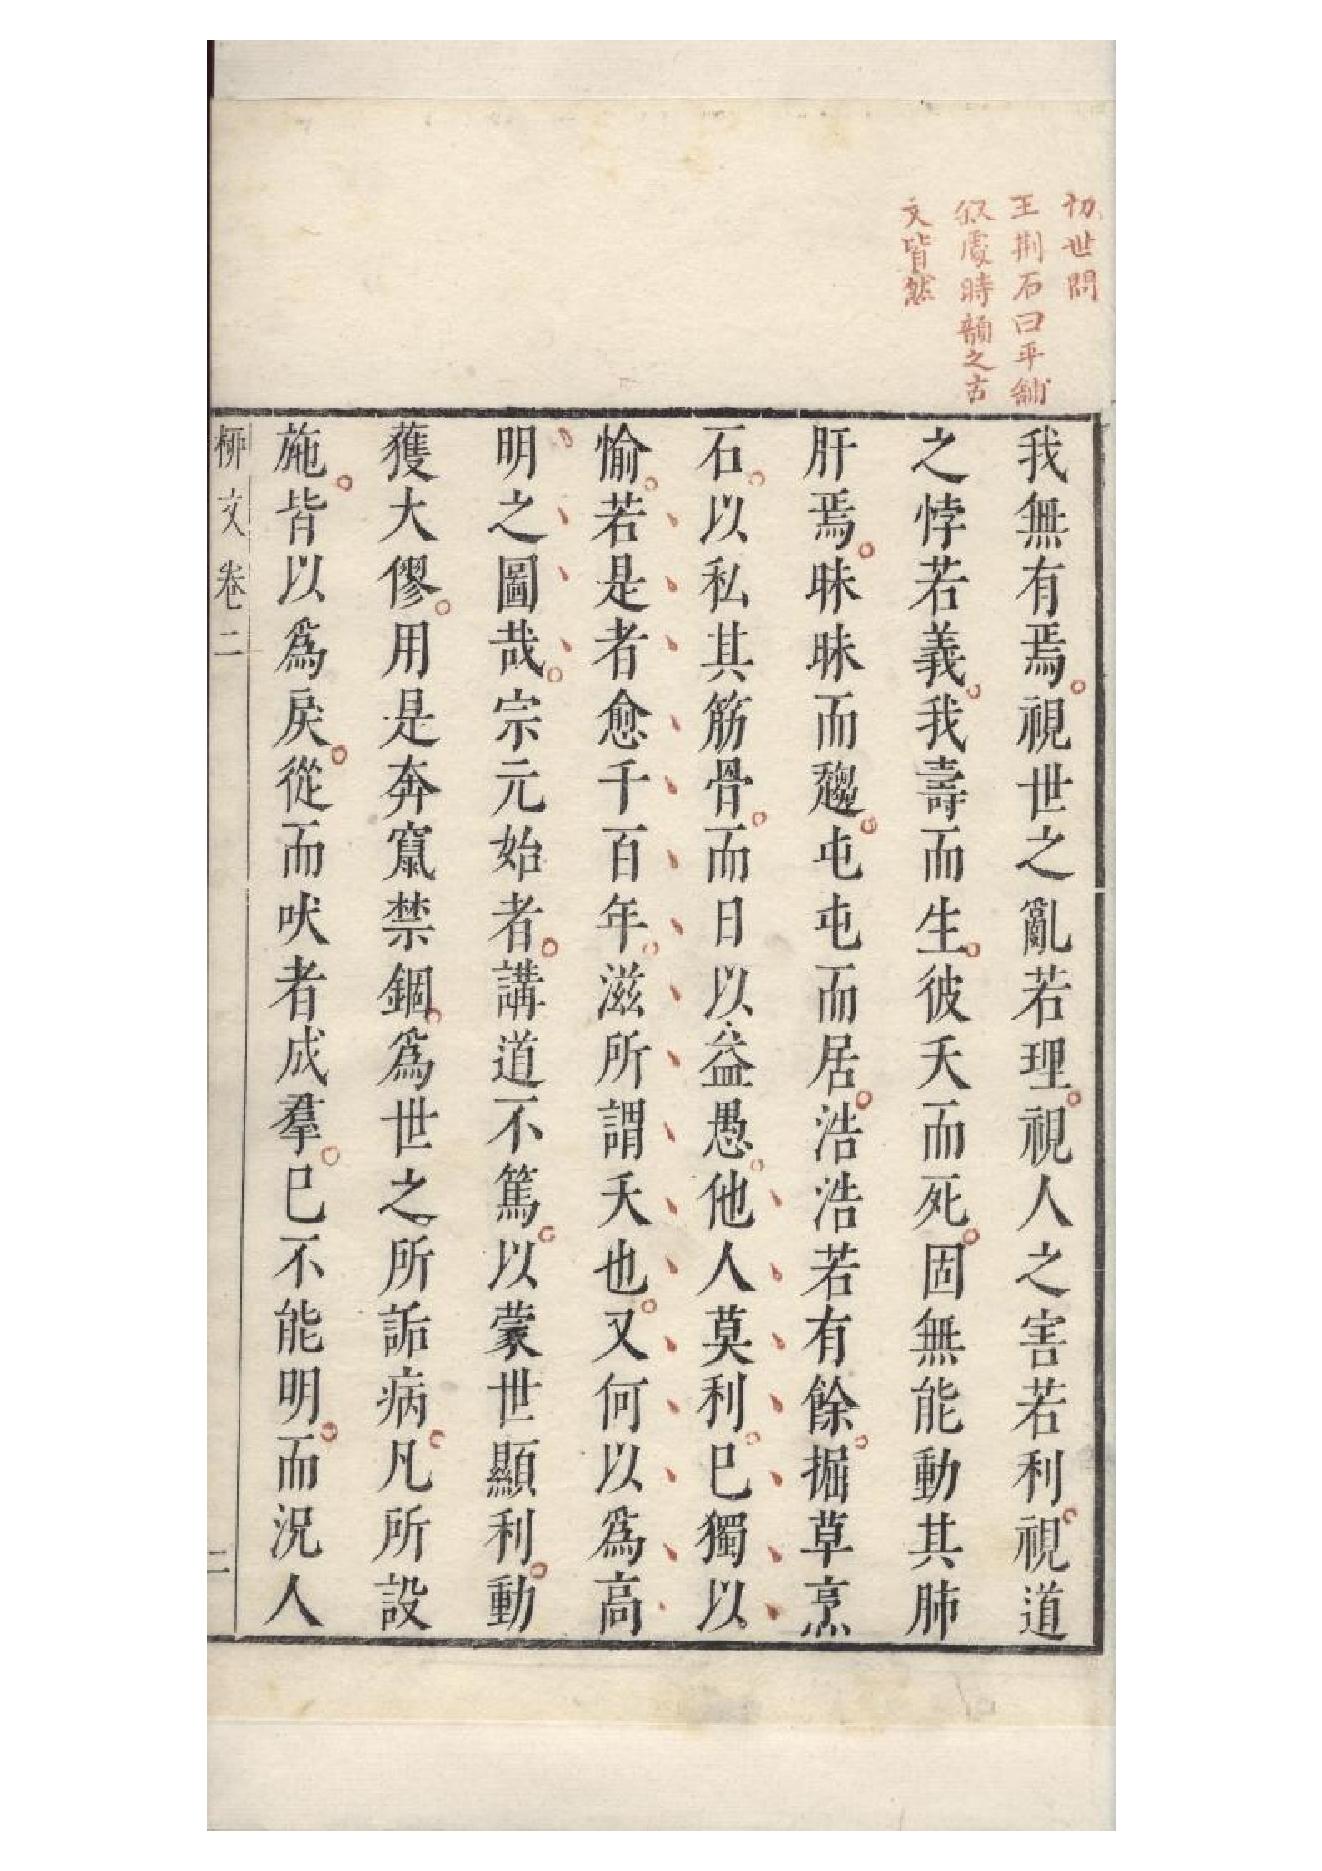 切世問
王荆石曰平鋪
叙處時韻之古
文皆然
我無有焉視世之亂若理視人之害若利視道
之悖若義我壽而生彼夭而死固無能動其肺
肝焉昧昧而趨屯屯而居浩浩若有餘掘草烹
石以私其筋骨而日以益愚他人莫利已獨以
愉若是者愈千百年滋所謂夭也又何以爲高
明之圖哉宗元始者講道不篤以蒙世顯利動
獲大僇用是奔竄禁錮爲世之所詬病凡所設
施皆以爲戾從而吠者成羣已不能明而況人
柳文卷二 二